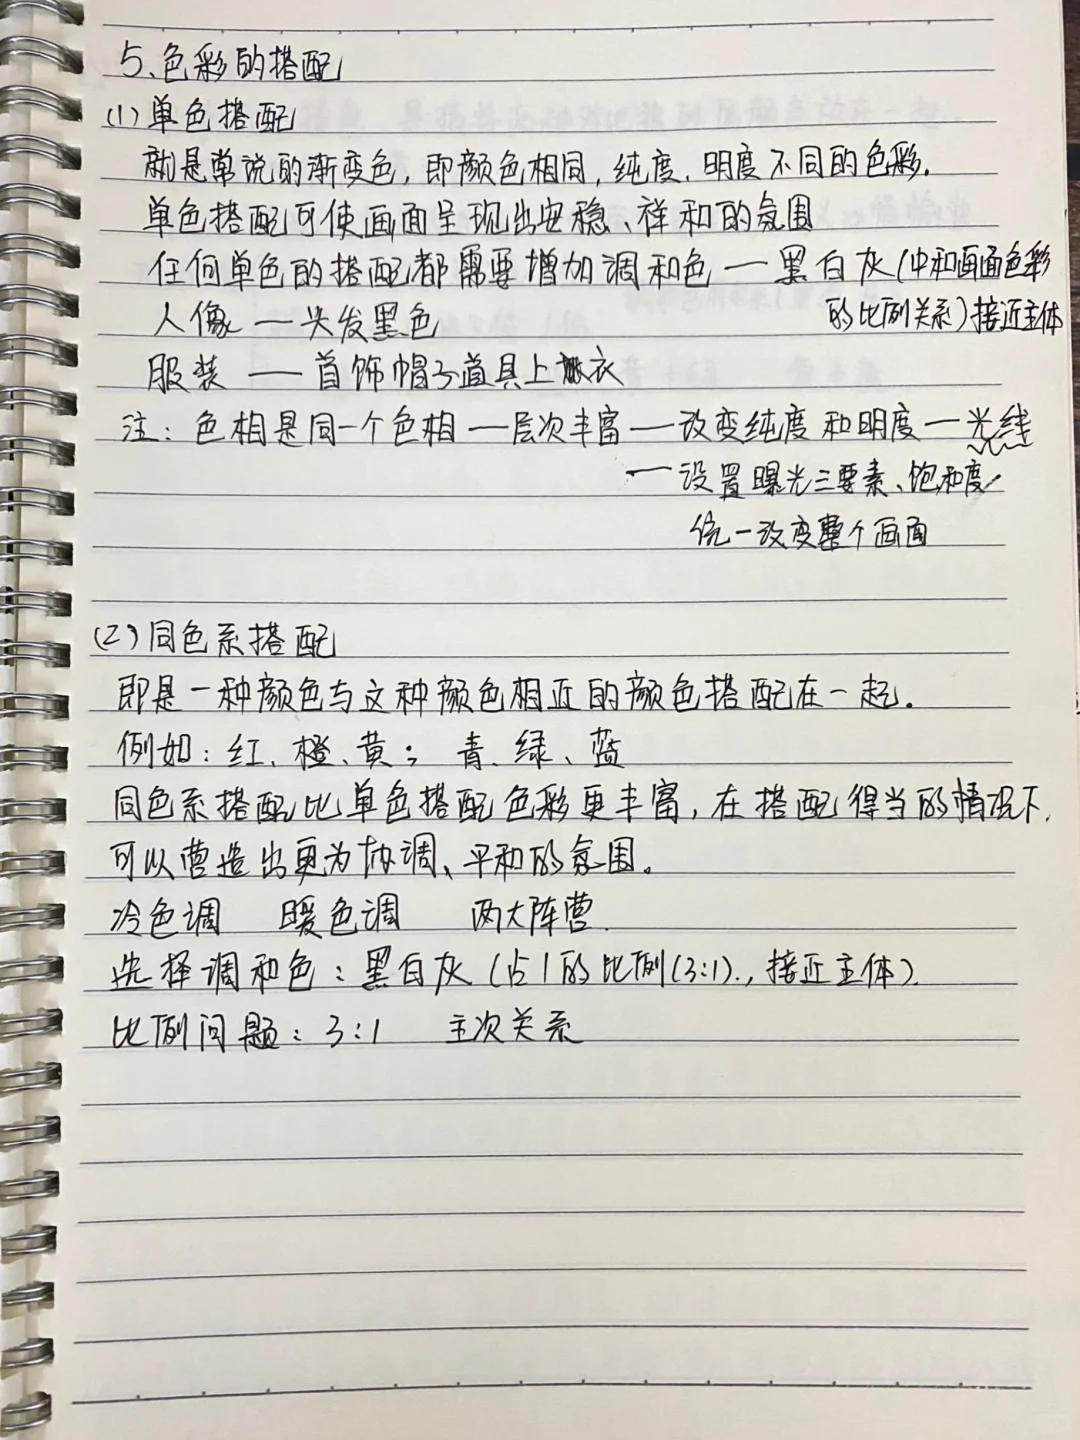 5、色彩的搭配
(1)单色搭配
就是常说的渐变色，即颜色相同，纯度、明度不同的色彩.
单色搭配可使画面呈现出安稳、祥和的氛围
任何单色的搭配都需要增加调和色 — 黑白灰(中和画面色彩
的比例关系)接近主体
人像 — 头发黑色
服装 — 首饰帽子道具上衣
注：色相是同一个色相 — 层次丰富 — 改变纯度和明度 — 光线
— 设置曝光三要素、饱和度
统一改变整个画面
(2)同色系搭配
即是一种颜色与这种颜色相近的颜色搭配在一起.
例如：红、橙、黄；青、绿、蓝
同色系搭配比单色搭配色彩更丰富，在搭配得当的情况下，
可以营造出更为协调、平和的氛围。
冷色调 暖色调 两大阵营.
选择调和色：黑白灰(占1的比例(3:1).，接近主体).
比例问题：3:1 主次关系